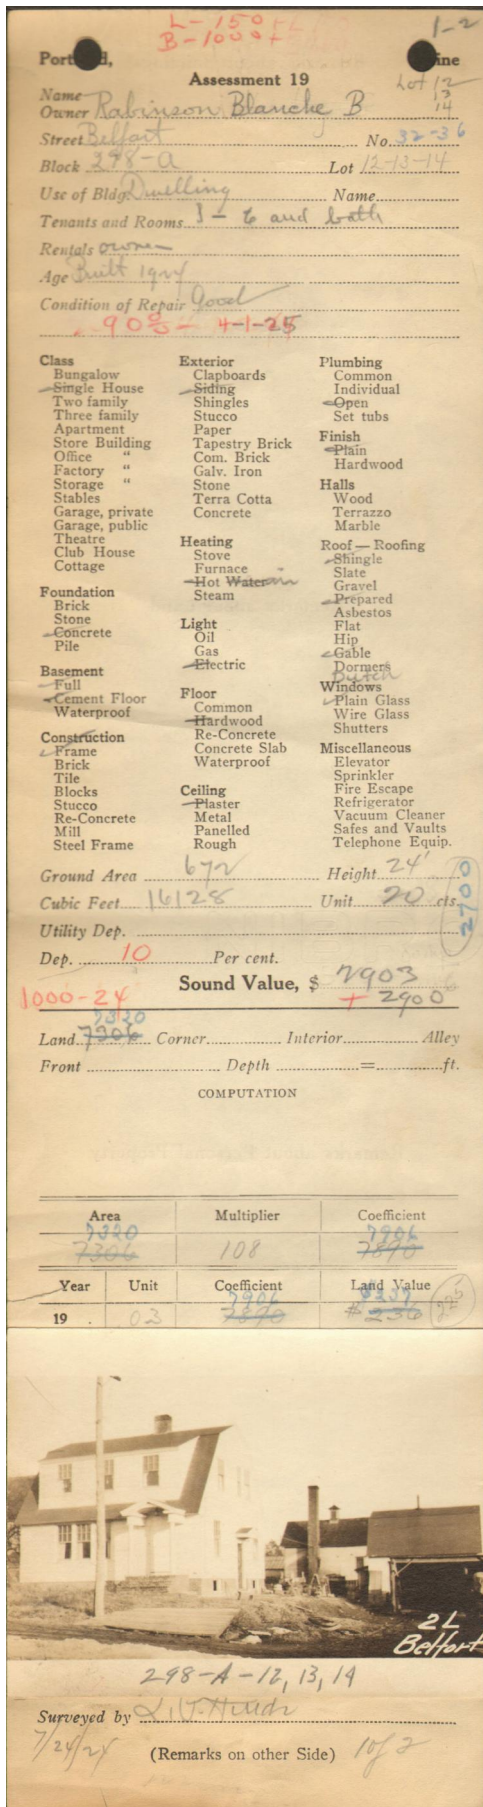 L-150+
B-1000+
1-2
Portland, Maine
Assessment 19
Lot 12
13
14
Name
Owner Rabinson Blanche B
Street Belfort No. 32-36
Block 298-A Lot 12-13-14
Use of Bldg. Dwelling Name
Tenants and Rooms 1 - 6 and bath
Rentals owner
Age Built 1924
Condition of Repair Good
90% - 4-1-25
Class
Bungalow
Single House
Two family
Three family
Apartment
Store Building
Office "
Factory "
Storage "
Stables
Garage, private
Garage, public
Theatre
Club House
Cottage
Foundation
Brick
Stone
Concrete
Pile
Basement
Full
Cement Floor
Waterproof
Construction
Frame
Brick
Tile
Blocks
Stucco
Re-Concrete
Mill
Steel Frame
Exterior
Clapboards
Siding
Shingles
Stucco
Paper
Tapestry Brick
Com. Brick
Galv. Iron
Stone
Terra Cotta
Concrete
Heating
Stove
Furnace
Hot Water air
Steam
Light
Oil
Gas
Electric
Floor
Common
Hardwood
Re-Concrete
Concrete Slab
Waterproof
Ceiling
Plaster
Metal
Panelled
Rough
Plumbing
Common
Individual
Open
Set tubs
Finish
Plain
Hardwood
Halls
Wood
Terrazzo
Marble
Roof — Roofing
Shingle
Slate
Gravel
Prepared
Asbestos
Flat
Hip
Gable
Dormers
Dutch
Windows
Plain Glass
Wire Glass
Shutters
Miscellaneous
Elevator
Sprinkler
Fire Escape
Refrigerator
Vacuum Cleaner
Safes and Vaults
Telephone Equip.
Ground Area 672 Height 24'
Cubic Feet 16128 Unit 20 cts.
2700
Utility Dep.
Dep. 10 Per cent.
Sound Value, $ 2903
1000-24 + 2900
7320
Land 7306 Corner Interior Alley
Front Depth = ft.
COMPUTATION
Area Multiplier Coefficient
7320 7906
7306 108 7890
Year Unit Coefficient Land Value
7906 $237
19 . 03 7890 $236 225
2L
Belfort
298-A-12, 13, 14
Surveyed by
7/24/24
(Remarks on other Side) 1 of 2